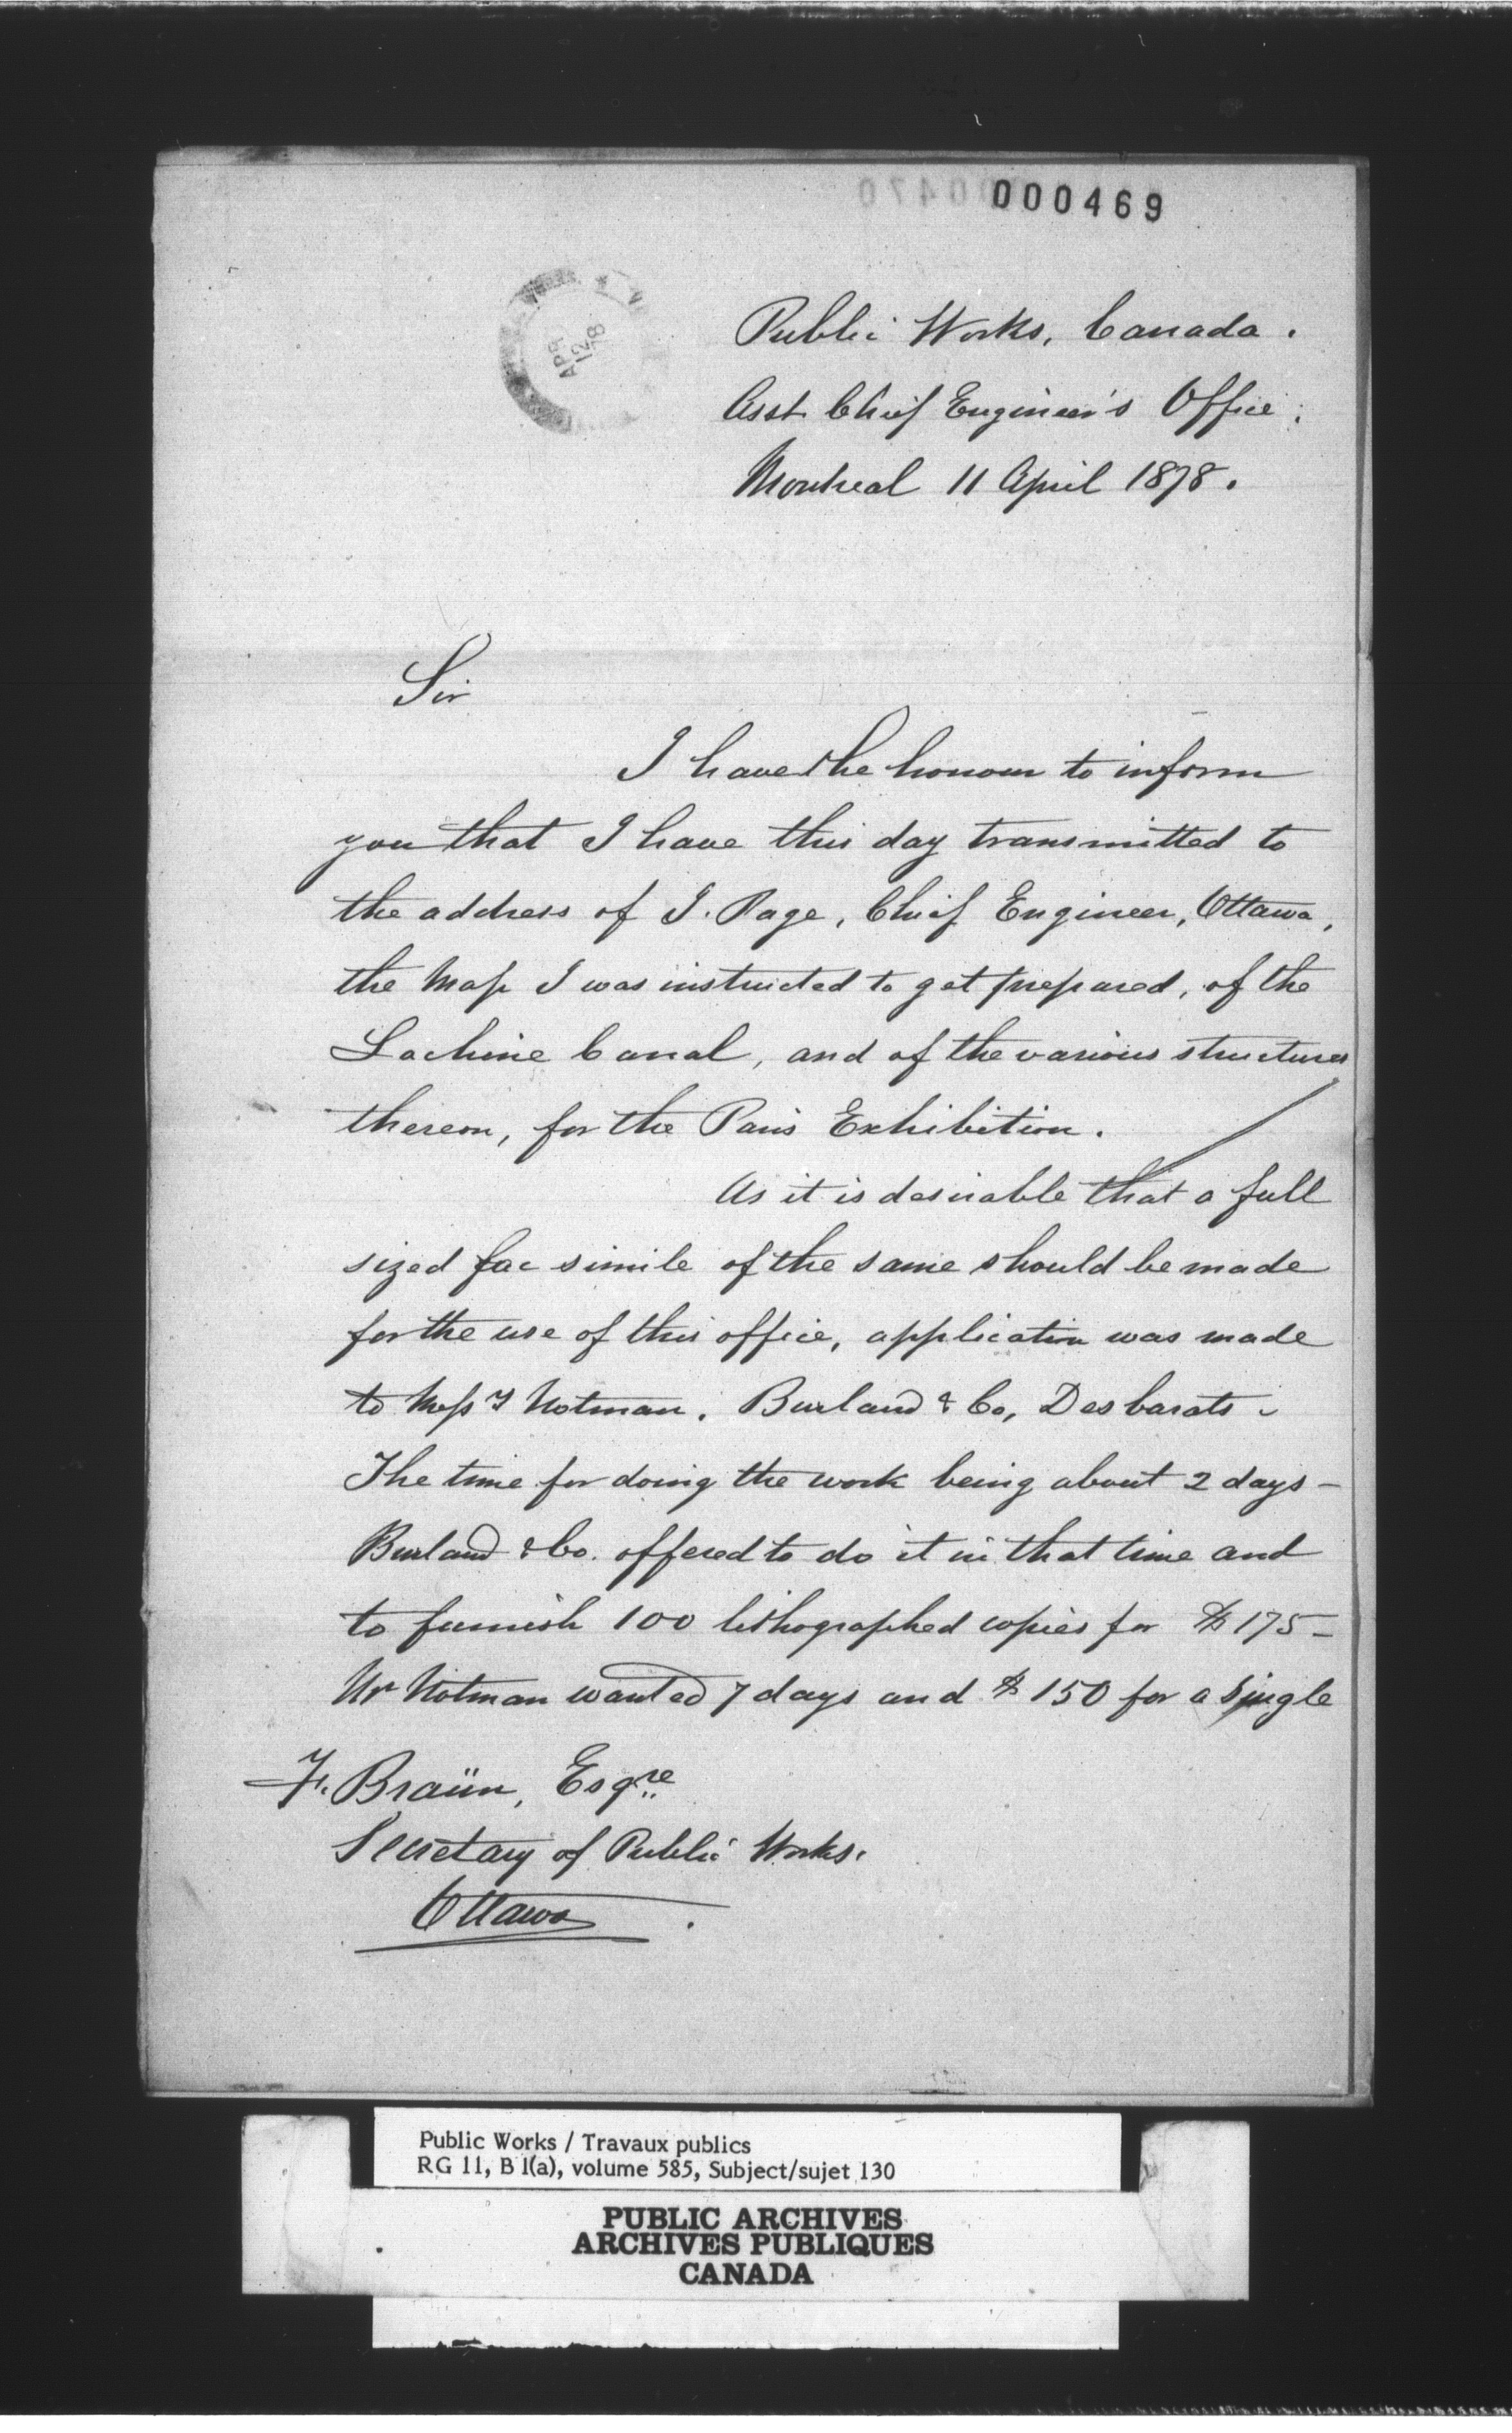 000469
APR 12 8
Public Works, Canada.
Asst Chief Engineer's Office.
Montreal 11 April 1878.
Sir
I have the honour to inform
you that I have this day transmitted to
the address of J. Page, Chief Engineer, Ottawa,
the Map I was instructed to get prepared, of the
Lachine Canal, and of the various structures
thereon, for the Paris Exhibition.
As it is desirable that a full
sized fac simile of the same should be made
for the use of this office, application was made
to Messrs Notman, Burland & Co, Desbarats.
The time for doing the work being about 2 days -
Burland & Co. offered to do it in that time and
to furnish 100 lithographed copies for $175 -
Mr Notman wanted 7 days and $150 for a single
F. Braün, Esqre
Secretary of Public Works.
Ottawa.
Public Works / Travaux publics
RG 11, B 1(a), volume 585, Subject/sujet 130
PUBLIC ARCHIVES
ARCHIVES PUBLIQUES
CANADA